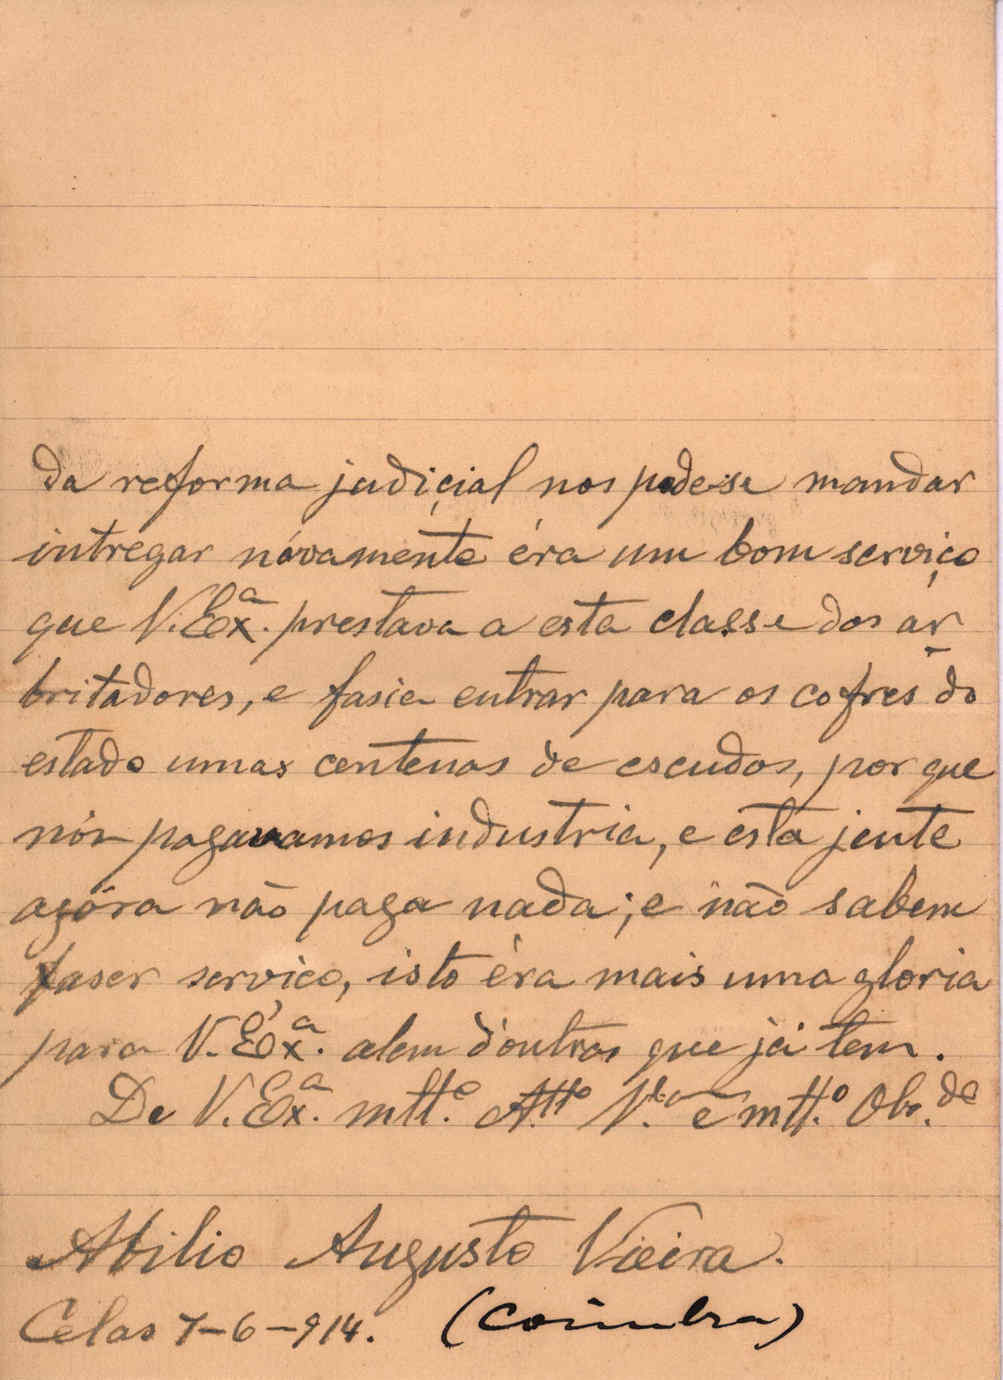 da reforma judiçial nos pode-se mandar
intregar nóvamente éra um bom serviço
que V. Exª. prestava a esta classe dos ar
britadores, e fasia entrar para os cofres do
estado umas centenas de escudos, por que
nós pagavamos industria, e esta jente
agóra não paga nada; e não sabem
faser serviço, isto éra mais uma gloria
para V. Exª. alem d'outras que já tem.
De V. Exª. mtt.º Att.º V.dor e mtt.º Obr.do
Abilio Augusto Vieira.
Celas 7-6-914. (Coimbra)